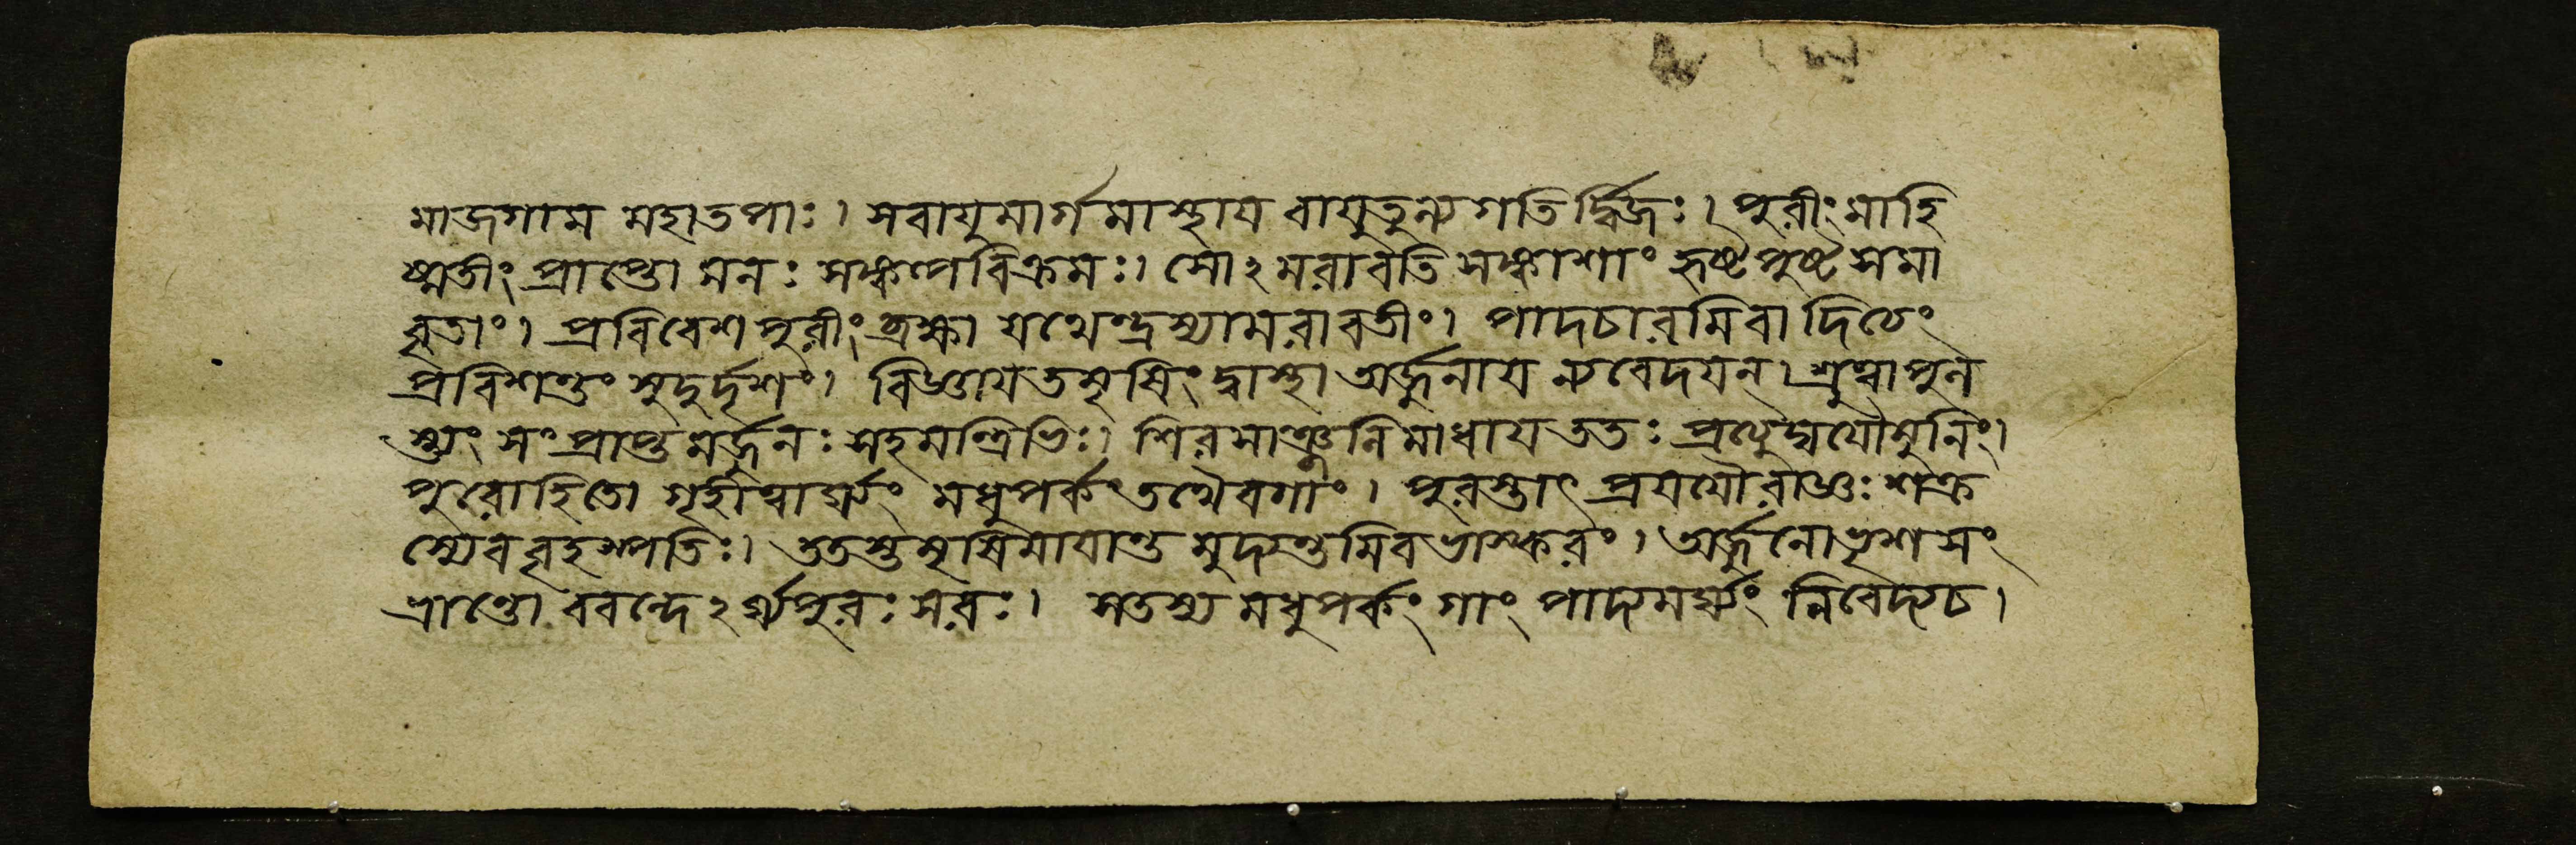 মাজগাম মহাতপাঃ। সবাযুমার্গমাস্থায বাযুতুল্যগতির্দ্বিজঃ। পুরীং মাহি
ষ্মতীং প্রাপ্তো মনঃ সঙ্কল্পবিক্রমঃ। সোঽমরাবতি সঙ্কাশাং হৃষ্টপুষ্টসমা
বৃতাং। প্রবিবেশ পুরীং ব্রহ্মা যথেন্দ্রস্যামরাবতীং। পাদচারমিবাদিত্যং
প্রবিশন্তং সুদুর্দৃশং। বিজ্ঞাযতমৃষিং দ্বাস্থা অর্জুনায ন্যবেদযন্। শ্রুত্বাপুল
স্ত্যং সংপ্রাপ্তমর্জুনঃ সহমন্ত্রিভিঃ। শিরসাঞ্জলিমাধায ততঃ প্রত্যুদ্যযৌমুনিং।
পুরোহিতো গৃহীত্বার্ঘ্যং মধুপর্কং তথৈবগাং। পুরস্তাৎ প্রযযৌরাজ্ঞঃ শক্র
স্যেববৃহস্পতিঃ। ততস্তমৃষিমাযান্ত মুদ্যন্তমিবভাস্করং। অর্জুনোভৃশসং
ভ্রান্তো ববন্দেঽর্ঘ্যপুরঃসরঃ। সতস্য মধুপর্কং গাং পাদ্যমর্ঘ্যং নিবেদ্যচ।